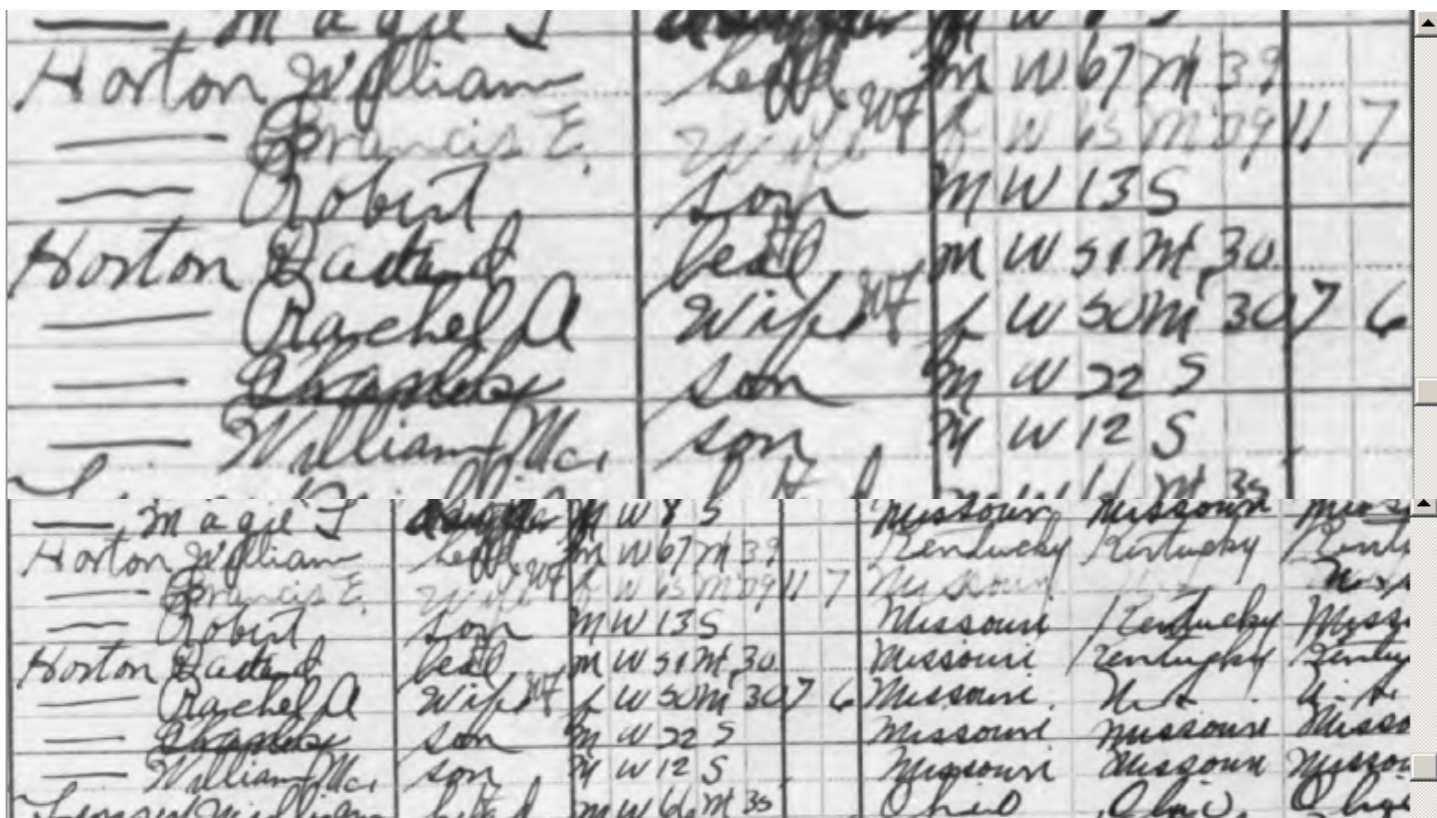 Magie J daughter M W 8 S
Horton William head M W 67 M 39
Francis E. wife WF F W 65 M 39 11 7
Robert son M W 13 S
Horton head M W 51 M 30
Rachel A Wife WF F W 50 M 30 7 6
son M W 22 S
William Mc. son M W 12 S
M 35
Magie J daughter M W 8 S Missouri Missouri
Horton William head M W 67 M 39 Kentucky Kentucky
Francis E. wife WF F W 65 M 39 11 7 Missouri
Robert son M W 13 S Missouri Kentucky
Horton head M W 51 M 30 Missouri Kentucky
Rachel A Wife WF F W 50 M 30 7 6 Missouri U.S. U.S.
son M W 22 S Missouri Missouri
William Mc. son M W 12 S Missouri Missouri
M W 66 M 35 Ohio Ohio Ohio